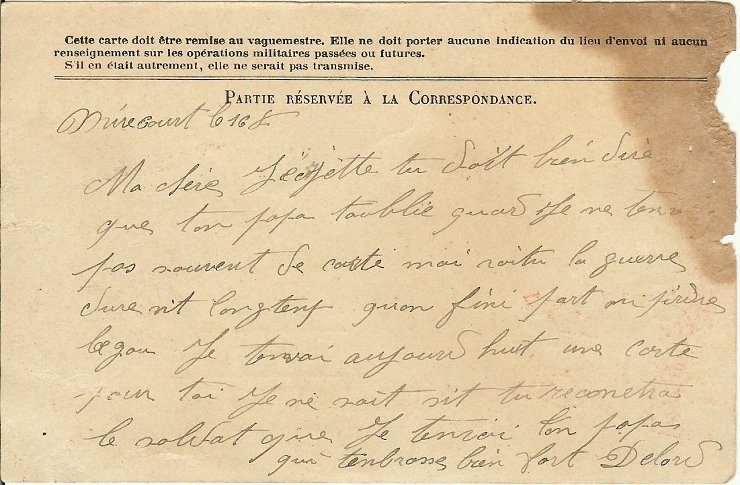 Cette carte doit être remise au vaguemestre. Elle ne doit porter aucune indication du lieu d'envoi ni aucun
renseignement sur les opérations militaires passées ou futures.
S'il en était autrement, elle ne serait pas transmise.
PARTIE RÉSERVÉE À LA CORRESPONDANCE.
Mirecourt le 16 8
Ma chere tu doit bien dire
que ton papa toublie quand Je ne tenvoi
pas souvent de carte mai voitu la guerre
dure sit longtemp quon fini part
Je tenvoi aujourd huit une carte
pour toi Je ne sait sit tu reconetras
le soldat que Je tenvoi ton papa
qui tenbrasse bien fort Delord